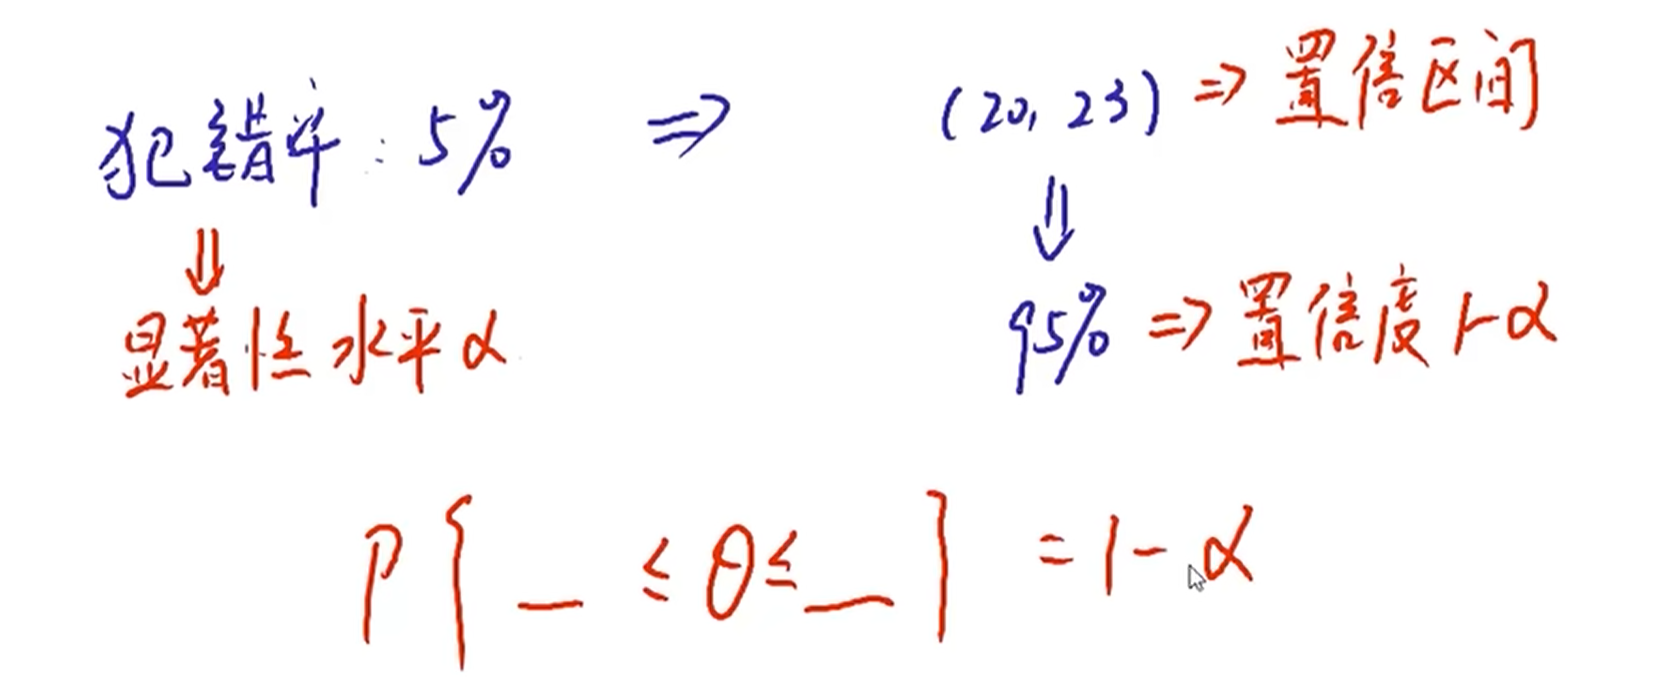 犯错率：5% ⇒ (20, 23) ⇒ 置信区间
⇓ ⇓
显著性水平α 95% ⇒ 置信度 1-α
P{ _ ≤ θ ≤ _ } = 1-α